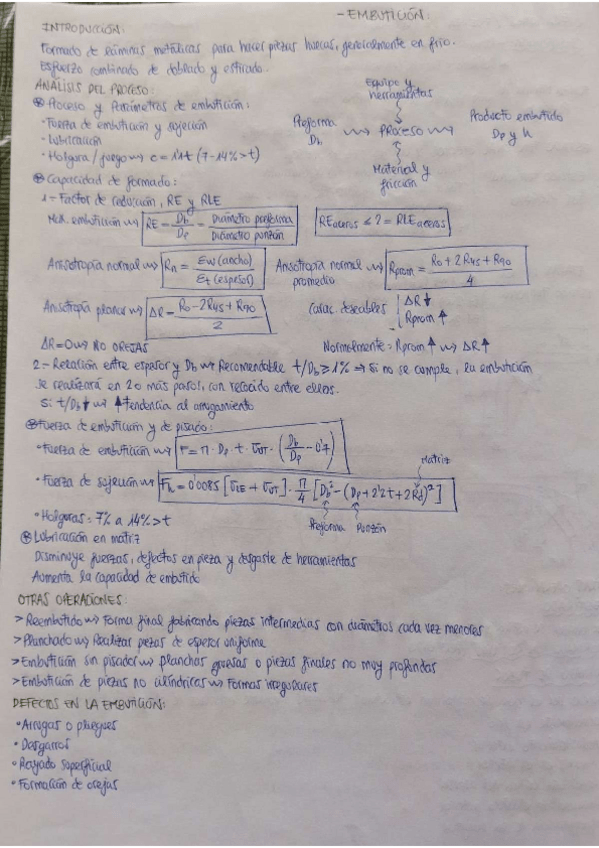 - EMBUTICIÓN:
INTRODUCCIÓN:
Formado de láminas metálicas para hacer piezas huecas, generalmente en frío.
Esfuerzo combinado de doblado y estirado.
ANÁLISIS DEL PROCESO:
⊛ Proceso y Parámetros de embutición:
· Fuerza de embutición y sujeción
· Lubricación
· Holgura / juego ⇝ c = 1'1t (7-14% > t)
Equipo y herramientas
Preforma Db ⇝ PROCESO ⇝ Producto embutido Dp y h
Material y fricción
⊛ Capacidad de formado:
1- Factor de reducción, RE y RLE
Med. embutición ⇝ RE = Db/Dp = Diámetro preforma / Diámetro punzón
REaceros ≤ 2 = RLEaceros
Anisotropía normal ⇝ Rn = Ew (ancho) / Et (espesor)
Anisotropía normal promedio ⇝ Rprom = (R0 + 2R45 + R90) / 4
Anisotropía planar ⇝ ΔR = (R0 - 2R45 + R90) / 2
Carac. deseables { ΔR ↓ Rprom ↑
ΔR = 0 ⇝ NO OREJAS
Normalmente = Rprom ↑ ⇝ ΔR ↑
2- Relación entre espesor y Db ⇝ Recomendable t/Db ≥ 1% ⇒ Si no se cumple, la embutición
se realizará en 2 o más pasos, con recocido entre ellos.
Si t/Db ↓ ⇝ ↑ tendencia al arrugamiento
⊛ Fuerza de embutición y de pisado:
· Fuerza de embutición ⇝ F = π · Dp · t · σUT · (Db/Dp - 0'7)
· Fuerza de sujeción ⇝ Fh = 0'0085 [σLE + σUT] · π/4 [Db² - (Dp + 2'2t + 2Rd)²]
Matriz
Preforma Punzón
· Holguras = 7% a 14% > t
⊛ Lubricación en matriz
Disminuye fuerzas, defectos en pieza y desgaste de herramientas
Aumenta la capacidad de embutido
OTRAS OPERACIONES:
> Reembutido ⇝ Forma final fabricando piezas intermedias con diámetros cada vez menores
> Planchado ⇝ Realizar piezas de espesor uniforme
> Embutición sin pisador ⇝ planchas gruesas o piezas finales no muy profundas
> Embutición de piezas no cilíndricas ⇝ Formas irregulares
DEFECTOS EN LA EMBUTICIÓN:
· Arrugas o pliegues
· Desgarros
· Rayado superficial
· Formación de orejas